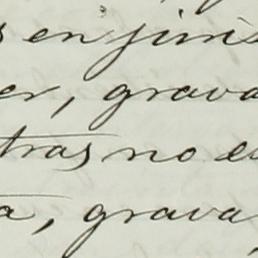 s en juris
er, grava
tras no es
a, grava